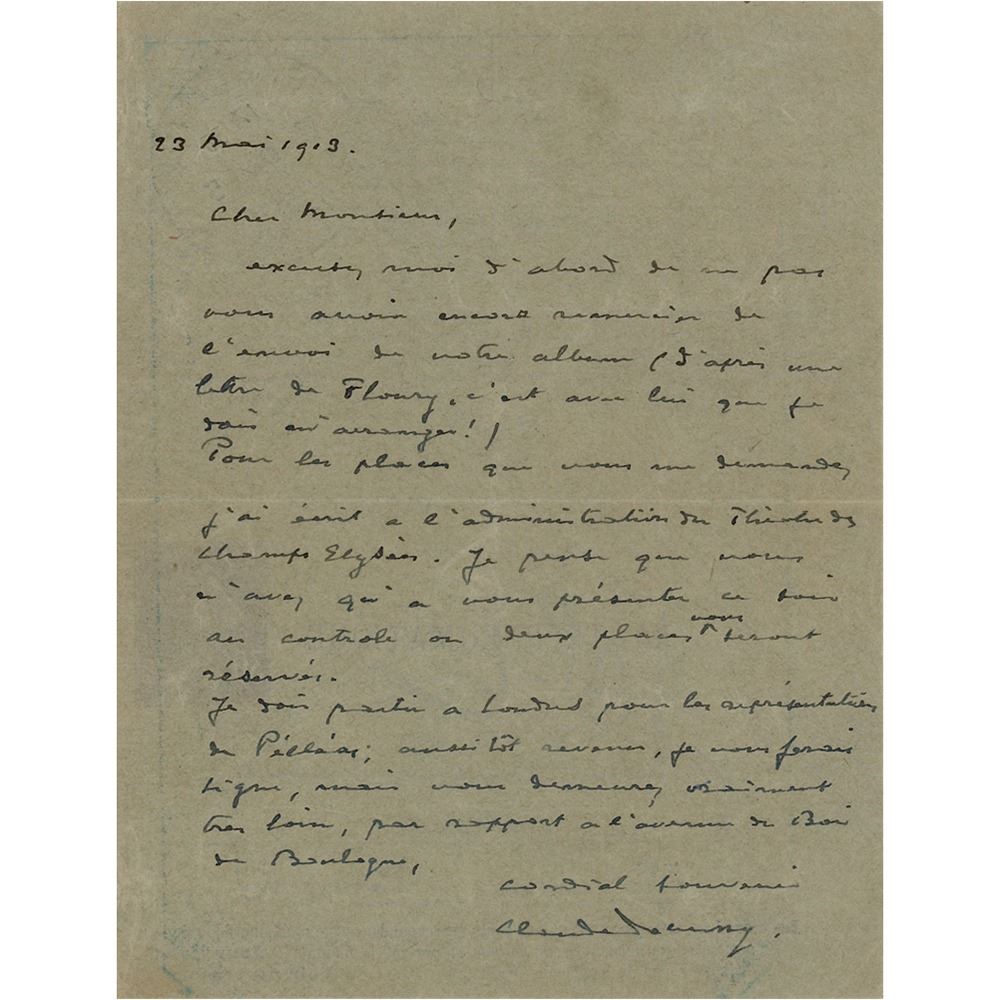 23 Mai 1913.
Cher Monsieur,
excusez moi d'abord de ne pas
vous avoir encore remercier de
l'envoi de votre album (d'après une
lettre de Floury, c'est avec lui que je
dois m'arranger!)
Pour les places que vous me demandez
j'ai écrit a l'administration du Théatre des
Champs Elysées. Je pense que vous
n'avez qu'a vous présenter ce soir
au controle ou deux places vous seront
réservées.
Je dois partir a Londres pour les représentations
de Pélléas; aussitôt revenu, je vous ferais
signe, mais vous demeurez vraiment
tres loin, par rapport a l'avenue du Bois
de Boulogne,
Cordial souvenir
Claude Debussy.